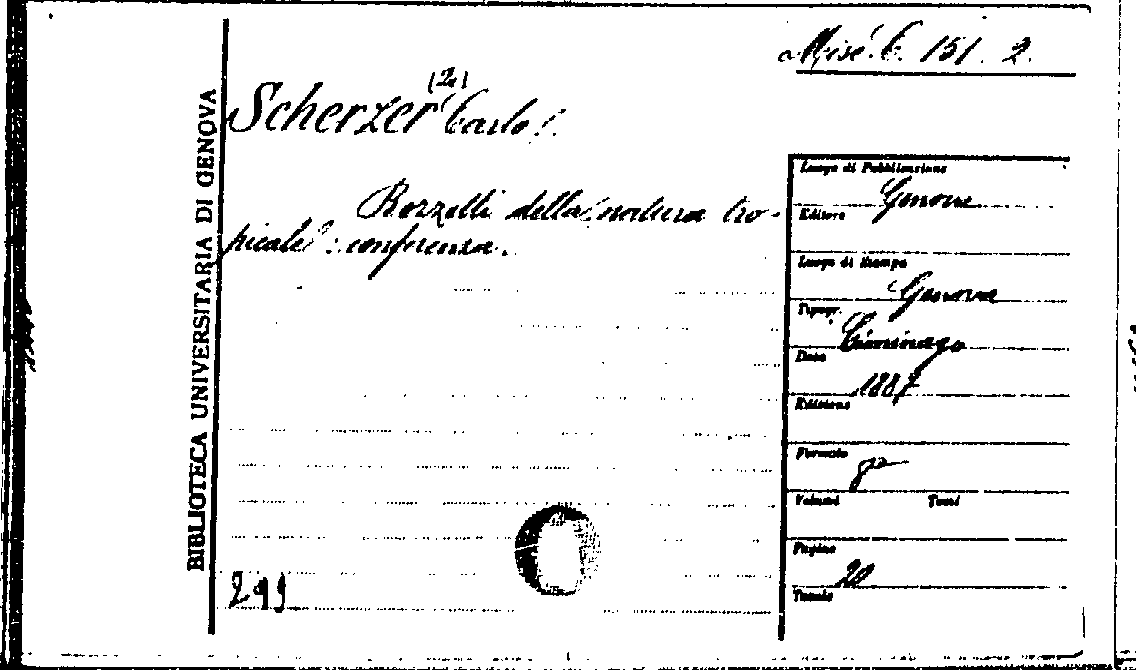 Misc. C. 151. 2.
(2)
Scherzer Carlo.
Bozzetti della natura tro-
picale: conferenza.
BIBLIOTECA UNIVERSITARIA DI GENOVA
Luogo di Pubblicazione
Genova
Editore
Luogo di Stampa
Genova
Tipogr.
Ciminago
Data
1887
Edizione
Formato
8°
Volumi Tomi
Pagine
20
Tavole
299